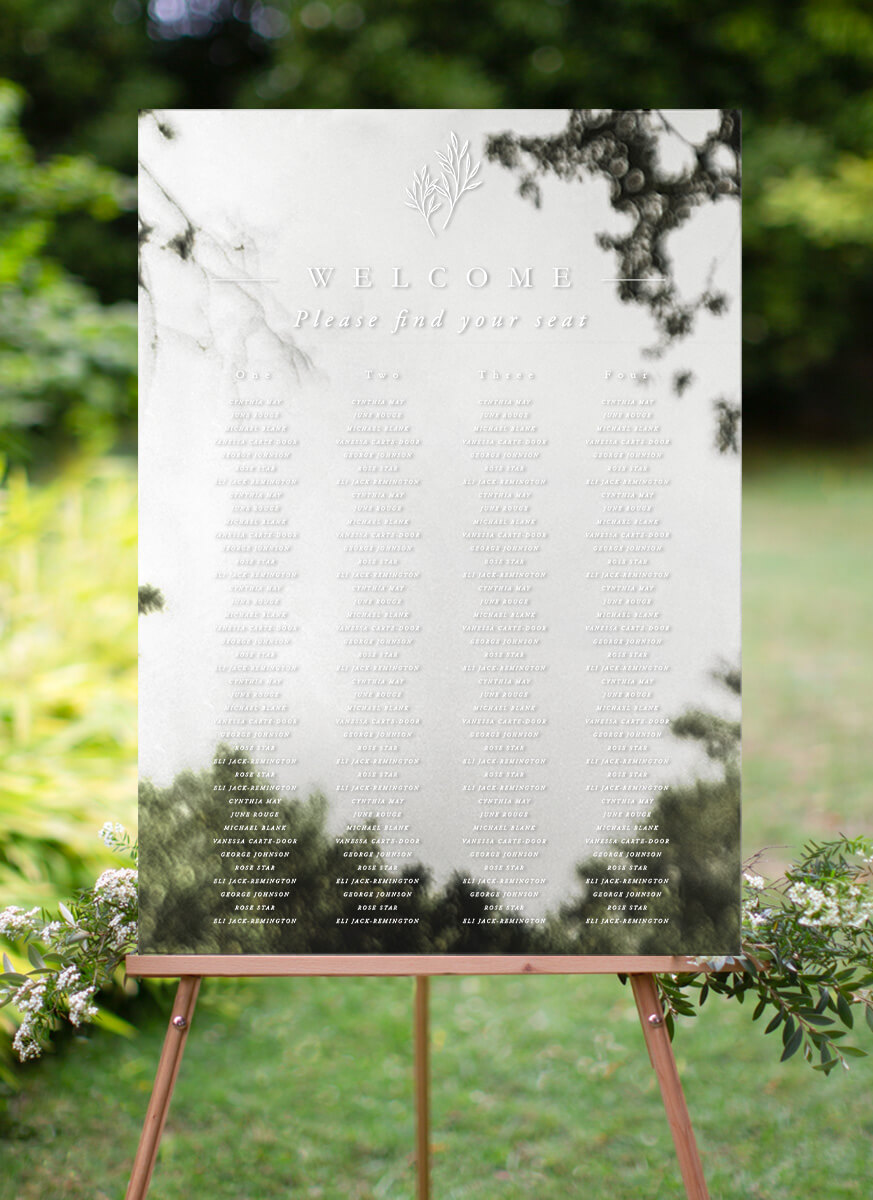 WELCOME
Please find your seat
One
CYNTHIA MAY
JUNE ROUGE
MICHAEL BLANK
VANESSA CARTE-DOOR
GEORGE JOHNSON
ROSE STAR
ELI JACK-REMINGTON
CYNTHIA MAY
JUNE ROUGE
MICHAEL BLANK
VANESSA CARTE-DOOR
GEORGE JOHNSON
ROSE STAR
ELI JACK-REMINGTON
CYNTHIA MAY
JUNE ROUGE
MICHAEL BLANK
VANESSA CARTE-DOOR
GEORGE JOHNSON
ROSE STAR
ELI JACK-REMINGTON
CYNTHIA MAY
JUNE ROUGE
MICHAEL BLANK
VANESSA CARTE-DOOR
GEORGE JOHNSON
ROSE STAR
ELI JACK-REMINGTON
ROSE STAR
ELI JACK-REMINGTON
CYNTHIA MAY
JUNE ROUGE
MICHAEL BLANK
VANESSA CARTE-DOOR
GEORGE JOHNSON
ROSE STAR
ELI JACK-REMINGTON
GEORGE JOHNSON
ROSE STAR
ELI JACK-REMINGTON
Two
CYNTHIA MAY
JUNE ROUGE
MICHAEL BLANK
VANESSA CARTE-DOOR
GEORGE JOHNSON
ROSE STAR
ELI JACK-REMINGTON
CYNTHIA MAY
JUNE ROUGE
MICHAEL BLANK
VANESSA CARTE-DOOR
GEORGE JOHNSON
ROSE STAR
ELI JACK-REMINGTON
CYNTHIA MAY
JUNE ROUGE
MICHAEL BLANK
VANESSA CARTE-DOOR
GEORGE JOHNSON
ROSE STAR
ELI JACK-REMINGTON
CYNTHIA MAY
JUNE ROUGE
MICHAEL BLANK
VANESSA CARTE-DOOR
GEORGE JOHNSON
ROSE STAR
ELI JACK-REMINGTON
ROSE STAR
ELI JACK-REMINGTON
CYNTHIA MAY
JUNE ROUGE
MICHAEL BLANK
VANESSA CARTE-DOOR
GEORGE JOHNSON
ROSE STAR
ELI JACK-REMINGTON
GEORGE JOHNSON
ROSE STAR
ELI JACK-REMINGTON
Three
CYNTHIA MAY
JUNE ROUGE
MICHAEL BLANK
VANESSA CARTE-DOOR
GEORGE JOHNSON
ROSE STAR
ELI JACK-REMINGTON
CYNTHIA MAY
JUNE ROUGE
MICHAEL BLANK
VANESSA CARTE-DOOR
GEORGE JOHNSON
ROSE STAR
ELI JACK-REMINGTON
CYNTHIA MAY
JUNE ROUGE
MICHAEL BLANK
VANESSA CARTE-DOOR
GEORGE JOHNSON
ROSE STAR
ELI JACK-REMINGTON
CYNTHIA MAY
JUNE ROUGE
MICHAEL BLANK
VANESSA CARTE-DOOR
GEORGE JOHNSON
ROSE STAR
ELI JACK-REMINGTON
ROSE STAR
ELI JACK-REMINGTON
CYNTHIA MAY
JUNE ROUGE
MICHAEL BLANK
VANESSA CARTE-DOOR
GEORGE JOHNSON
ROSE STAR
ELI JACK-REMINGTON
GEORGE JOHNSON
ROSE STAR
ELI JACK-REMINGTON
Four
CYNTHIA MAY
JUNE ROUGE
MICHAEL BLANK
VANESSA CARTE-DOOR
GEORGE JOHNSON
ROSE STAR
ELI JACK-REMINGTON
CYNTHIA MAY
JUNE ROUGE
MICHAEL BLANK
VANESSA CARTE-DOOR
GEORGE JOHNSON
ROSE STAR
ELI JACK-REMINGTON
CYNTHIA MAY
JUNE ROUGE
MICHAEL BLANK
VANESSA CARTE-DOOR
GEORGE JOHNSON
ROSE STAR
ELI JACK-REMINGTON
CYNTHIA MAY
JUNE ROUGE
MICHAEL BLANK
VANESSA CARTE-DOOR
GEORGE JOHNSON
ROSE STAR
ELI JACK-REMINGTON
ROSE STAR
ELI JACK-REMINGTON
CYNTHIA MAY
JUNE ROUGE
MICHAEL BLANK
VANESSA CARTE-DOOR
GEORGE JOHNSON
ROSE STAR
ELI JACK-REMINGTON
GEORGE JOHNSON
ROSE STAR
ELI JACK-REMINGTON